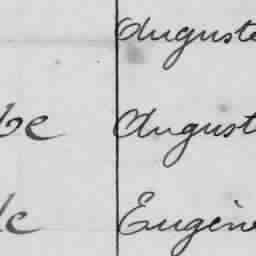 Auguste
be August
de Eugène